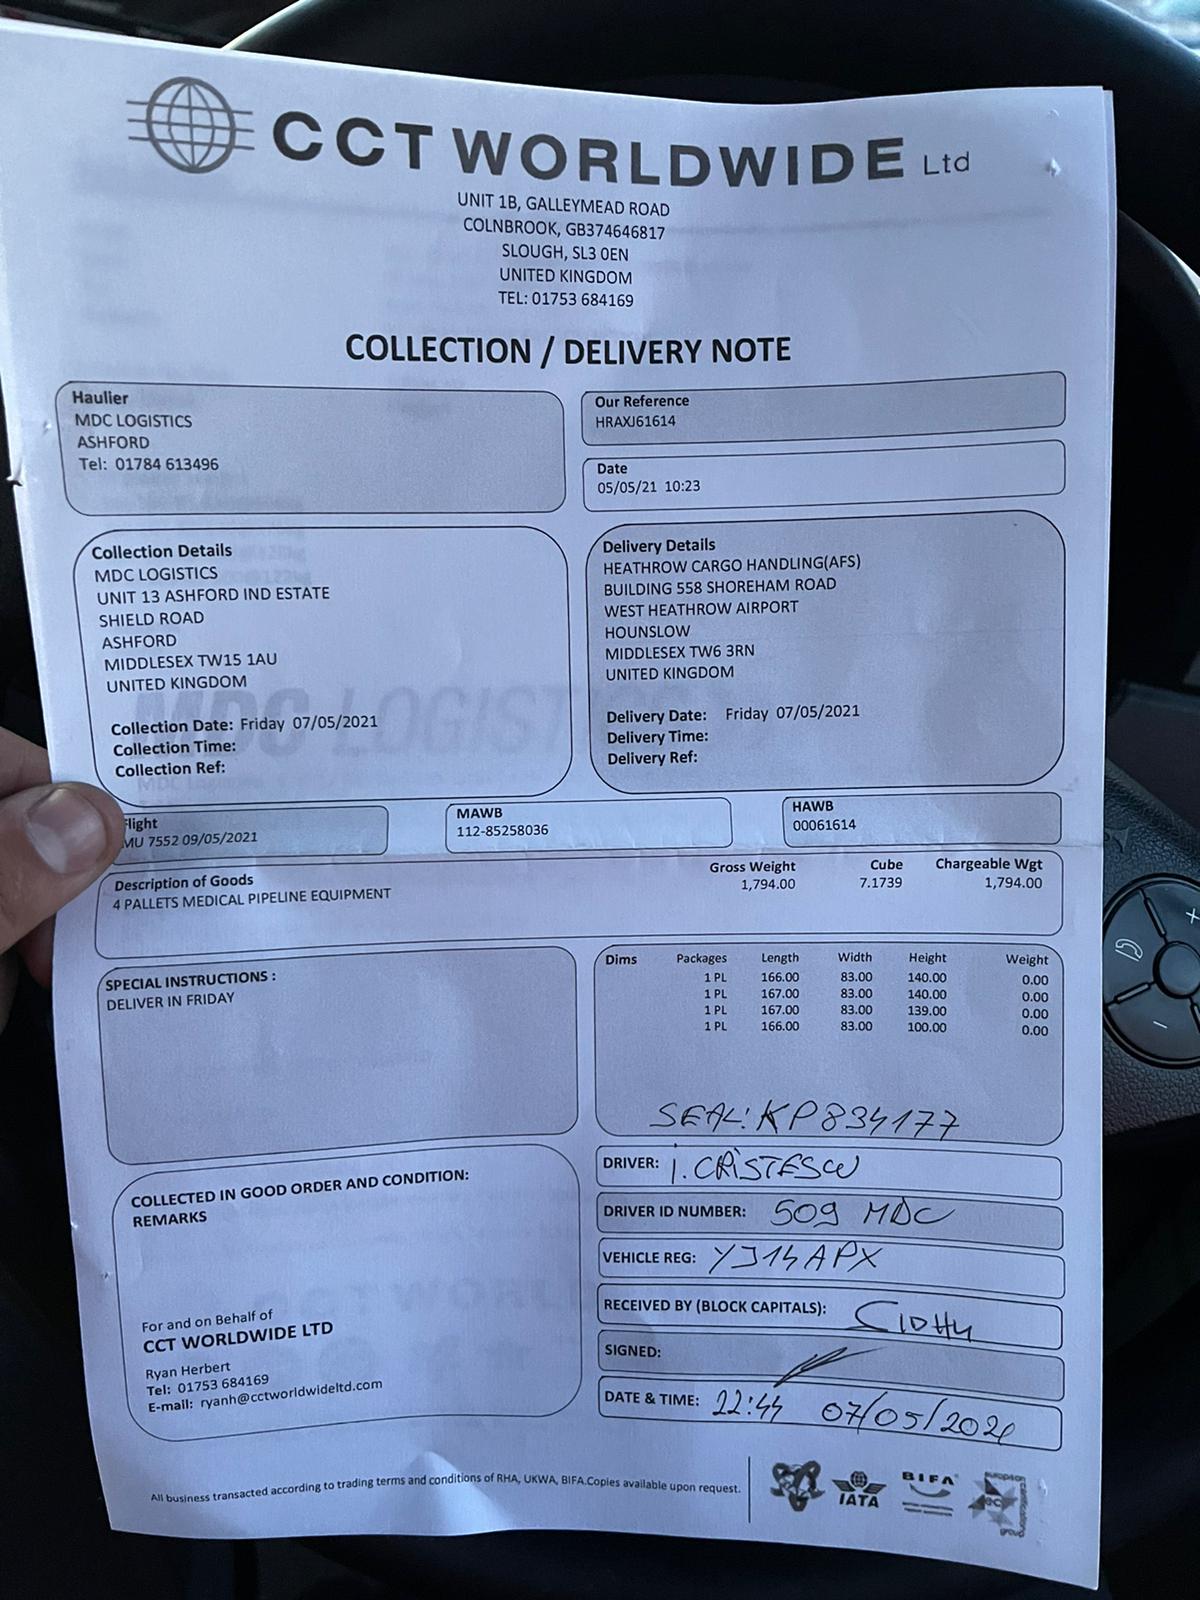 CCT WORLDWIDE Ltd
UNIT 1B, GALLEYMEAD ROAD
COLNBROOK, GB374646817
SLOUGH, SL3 0EN
UNITED KINGDOM
TEL: 01753 684169
COLLECTION / DELIVERY NOTE
Haulier
MDC LOGISTICS
ASHFORD
Tel: 01784 613496
Our Reference
HRAXJ61614
Date
05/05/21 10:23
Collection Details
MDC LOGISTICS
UNIT 13 ASHFORD IND ESTATE
SHIELD ROAD
ASHFORD
MIDDLESEX TW15 1AU
UNITED KINGDOM
Collection Date: Friday 07/05/2021
Collection Time:
Collection Ref:
Delivery Details
HEATHROW CARGO HANDLING(AFS)
BUILDING 558 SHOREHAM ROAD
WEST HEATHROW AIRPORT
HOUNSLOW
MIDDLESEX TW6 3RN
UNITED KINGDOM
Delivery Date: Friday 07/05/2021
Delivery Time:
Delivery Ref:
Flight
MU 7552 09/05/2021
MAWB
112-85258036
HAWB
00061614
Description of Goods Gross Weight Cube Chargeable Wgt
4 PALLETS MEDICAL PIPELINE EQUIPMENT 1,794.00 7.1739 1,794.00
SPECIAL INSTRUCTIONS :
DELIVER IN FRIDAY
Dims Packages Length Width Height Weight
1 PL 166.00 83.00 140.00 0.00
1 PL 167.00 83.00 140.00 0.00
1 PL 167.00 83.00 139.00 0.00
1 PL 166.00 83.00 100.00 0.00
SEAL: KP834177
COLLECTED IN GOOD ORDER AND CONDITION:
REMARKS
For and on Behalf of
CCT WORLDWIDE LTD
Ryan Herbert
Tel: 01753 684169
E-mail: ryanh@cctworldwideltd.com
DRIVER: I. CRISTESCU
DRIVER ID NUMBER: 509 MDC
VEHICLE REG: YJ14APX
RECEIVED BY (BLOCK CAPITALS): SIDHU
SIGNED:
DATE & TIME: 22:44 07/05/2021
All business transacted according to trading terms and conditions of RHA, UKWA, BIFA.Copies available upon request.
IATA
BIFA
european
certification
group